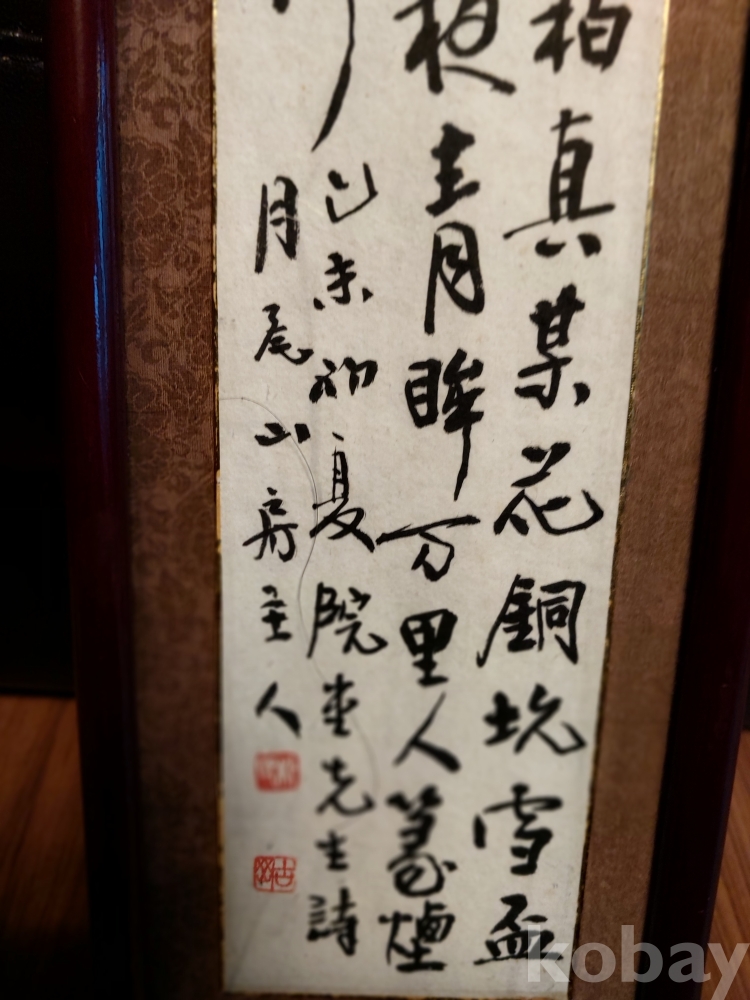 柏真某花銅坑雪盃
青眸万里人篆煙
己未初夏院堂先生詩
月尾山房主人
kobay